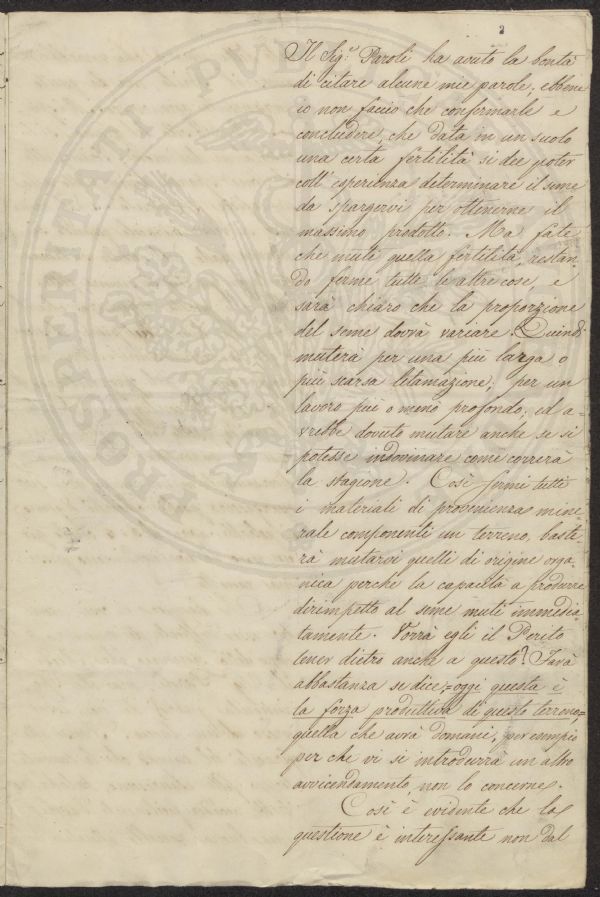 2
Il Sig.r Paroli ha avuto la bontà
di citare alcune mie parole; ebbene
io non faccio che confirmarle e
concludere, che data in un suolo
una certa fertilità si dee poter
coll' esperienza determinare il seme
da spargervi per ottenerne il
massimo prodotto. Ma fate
che muti quella fertilità, restan-
do ferme tutte le altre cose, e
sarà chiaro che la proporzione
del seme dovrà variare. Quindi
muterà per una più larga o
più scarsa letamazione; per un
lavoro più o meno profondo; ed a-
vrebbe dovuto mutare anche se si
potesse indovinare come correrà
la stagione. Così fermi tutti
i materiali di provenienza mine-
rale componenti un terreno, baste-
rà mutarvi quelli di origine orga-
nica perchè la capacità a produrre
dirimpetto al seme muti immedia-
tamente. Vorrà egli il Perito
tener dietro anche a questo? Farà
abbastanza se dice, =oggi questa è
la forza produttiva di questo terreno,=
quella che avrà domani, per esempio
per che vi si introdurrà un altro
avvicendamento, non lo concerne.
Così è evidente che la
questione è interessante non dal
PROSPERITATI PVB